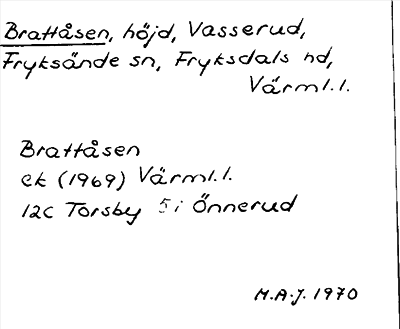 Brattåsen, höjd, Vasserud,
Fryksände sn, Fryksdals hd,
Värml.l.
Brattåsen
ek (1969) Värml.l.
12C Torsby 5i Önnerud
M.A.J. 1970